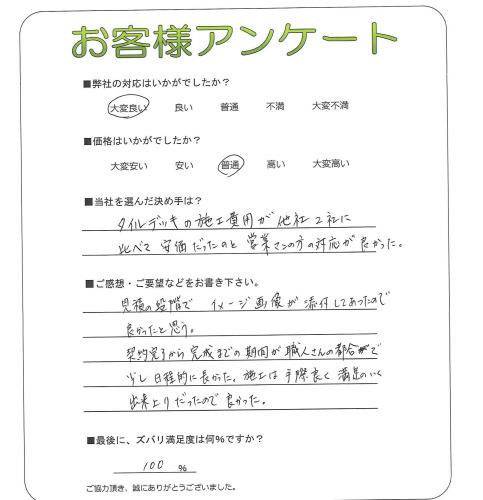 お客様アンケート
■弊社の対応はいかがでしたか？
大変良い 良い 普通 不満 大変不満
■価格はいかがでしたか？
大変安い 安い 普通 高い 大変高い
■当社を選んだ決め手は？
タイルデッキの施工費用が他社2社に
比べて安価だったのと営業マンの方の対応が良かった。
■ご感想・ご要望などをお書き下さい。
見積の段階でイメージ画像が添付してあったので
良かったと思う。
契約完了から完成までの期間が職人さんの都合で
少し日程的に長かった。施工は手際良く満足のいく
出来上りだったので良かった。
■最後に、ズバリ満足度は何%ですか？
100 %
ご協力頂き、誠にありがとうございました。